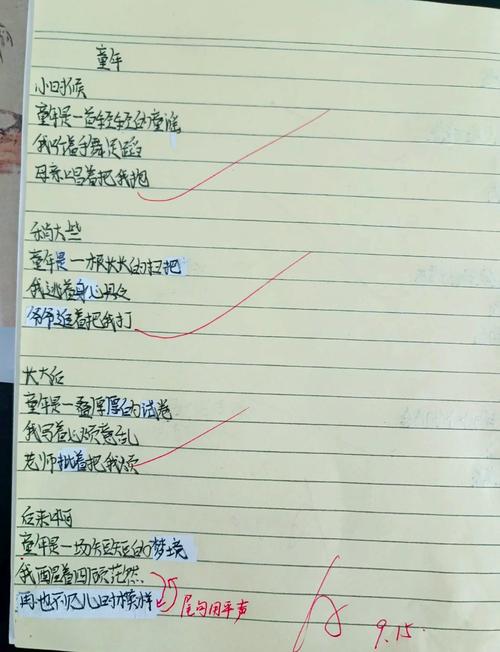 童年
小时候
童年是一首轻轻的童谣
我听着手舞足蹈
母亲唱着把我抱
稍大些
童年是一根长长的扫把
我逃着身心具疲
爷爷追着把我打
长大后
童年是一叠厚厚的试卷
我写着心烦意乱
老师批着把我烦
后来啊
童年是一场短短的梦境
我醒着四顾茫然
再也不见儿时模样
尾句用平声
9.15